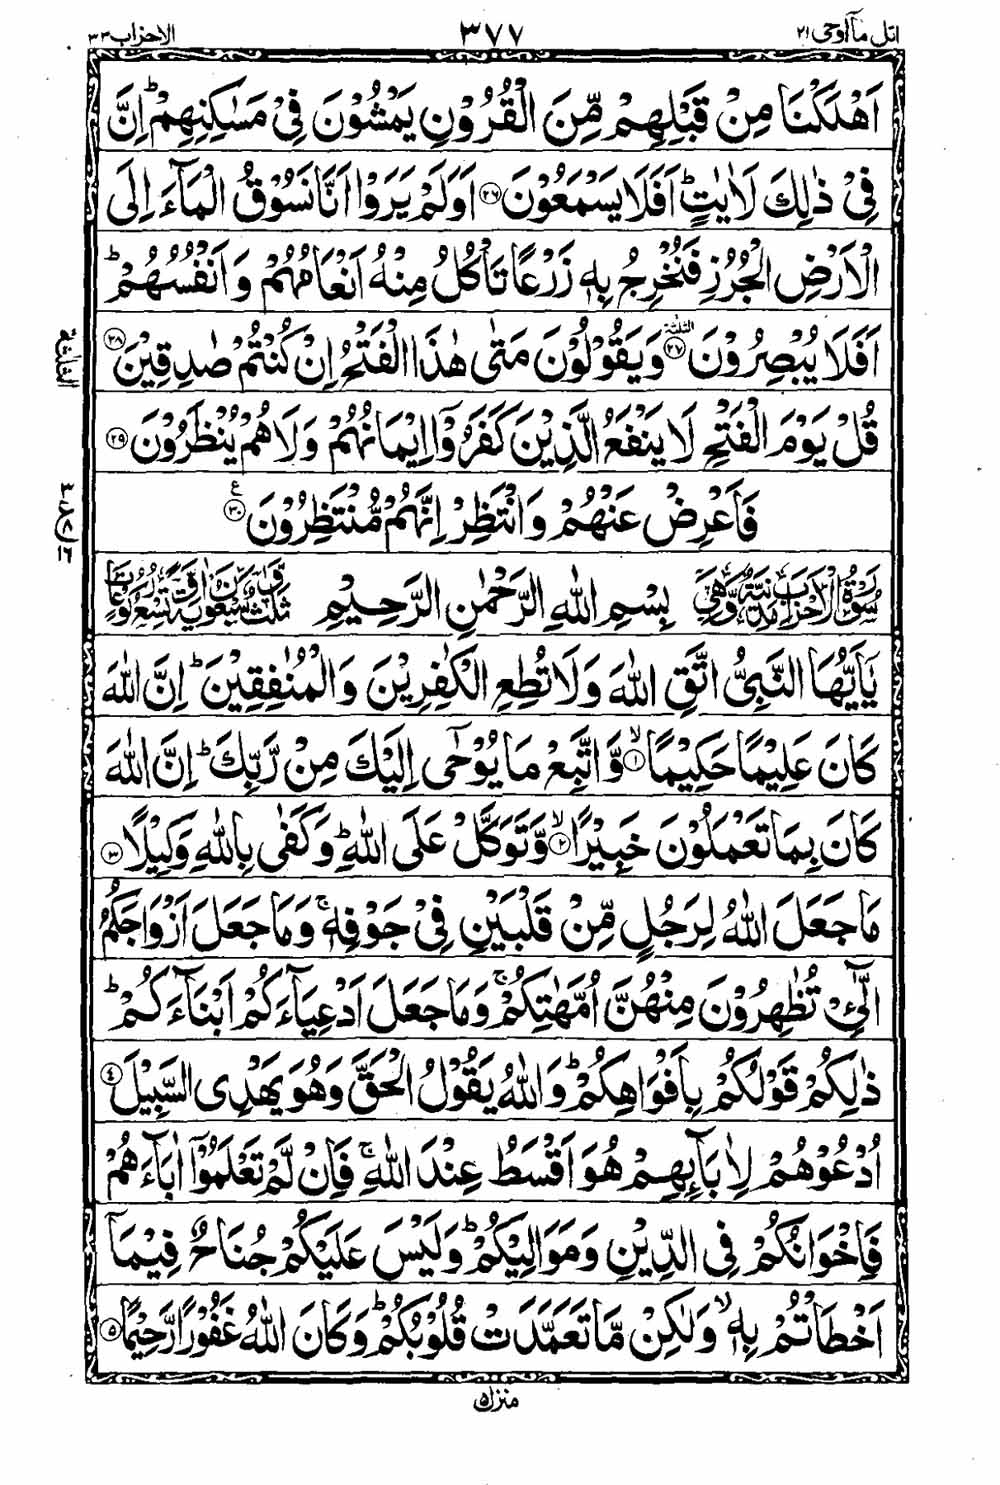 اتل ماۤ اوحی ٢١
٣٧٧
الاحزاب ٣٣
اَهْلَكْنَا مِنْ قَبْلِهِمْ مِّنَ الْقُرُوْنِ يَمْشُوْنَ فِیْ مَسٰكِنِهِمْ ؕ اِنَّ
فِیْ ذٰلِكَ لَاٰیٰتٍ ؕ اَفَلَا یَسْمَعُوْنَ ﴿٢٦﴾ اَوَلَمْ یَرَوْا اَنَّا نَسُوْقُ الْمَآءَ اِلَی
الْاَرْضِ الْجُرُزِ فَنُخْرِجُ بِهٖ زَرْعًا تَاْكُلُ مِنْهُ اَنْعَامُهُمْ وَ اَنْفُسُهُمْ ؕ
اَفَلَا یُبْصِرُوْنَ ﴿٢٧﴾ الثلٰثة وَ یَقُوْلُوْنَ مَتٰی هٰذَا الْفَتْحُ اِنْ كُنْتُمْ صٰدِقِیْنَ ﴿٢٨﴾
الثلٰثة
قُلْ یَوْمَ الْفَتْحِ لَا یَنْفَعُ الَّذِیْنَ كَفَرُوْۤا اِیْمَانُهُمْ وَ لَا هُمْ یُنْظَرُوْنَ ﴿٢٩﴾
فَاَعْرِضْ عَنْهُمْ وَ انْتَظِرْ اِنَّهُمْ مُّنْتَظِرُوْنَ ﴿٣٠﴾ ع
سُوْرَةُ الْاَحْزَابِ مَدَنِیَّةٌ وَّهِیَ بِسْمِ اللهِ الرَّحْمٰنِ الرَّحِیْمِ
یٰۤاَیُّهَا النَّبِیُّ اتَّقِ اللهَ وَ لَا تُطِعِ الْكٰفِرِیْنَ وَ الْمُنٰفِقِیْنَ ؕ اِنَّ اللهَ
كَانَ عَلِیْمًا حَكِیْمًا ۙ﴿١﴾ وَّ اتَّبِعْ مَا یُوْحٰۤی اِلَیْكَ مِنْ رَّبِّكَ ؕ اِنَّ اللهَ
كَانَ بِمَا تَعْمَلُوْنَ خَبِیْرًا ۙ﴿٢﴾ وَّ تَوَكَّلْ عَلَی اللهِ ؕ وَ كَفٰی بِاللهِ وَكِیْلًا ﴿٣﴾
مَا جَعَلَ اللهُ لِرَجُلٍ مِّنْ قَلْبَیْنِ فِیْ جَوْفِهٖ ۚ وَ مَا جَعَلَ اَزْوَاجَكُمُ
الّٰٓـِٔیْ تُظٰهِرُوْنَ مِنْهُنَّ اُمَّهٰتِكُمْ ۚ وَ مَا جَعَلَ اَدْعِیَآءَكُمْ اَبْنَآءَكُمْ ؕ
ذٰلِكُمْ قَوْلُكُمْ بِاَفْوَاهِكُمْ ؕ وَ اللهُ یَقُوْلُ الْحَقَّ وَ هُوَ یَهْدِی السَّبِیْلَ ﴿٤﴾
اُدْعُوْهُمْ لِاٰبَآىِٕهِمْ هُوَ اَقْسَطُ عِنْدَ اللهِ ۚ فَاِنْ لَّمْ تَعْلَمُوْۤا اٰبَآءَهُمْ
فَاِخْوَانُكُمْ فِی الدِّیْنِ وَ مَوَالِیْكُمْ ؕ وَ لَیْسَ عَلَیْكُمْ جُنَاحٌ فِیْمَاۤ
اَخْطَاْتُمْ بِهٖ ۙ وَ لٰكِنْ مَّا تَعَمَّدَتْ قُلُوْبُكُمْ ؕ وَ كَانَ اللهُ غَفُوْرًا رَّحِیْمًا ﴿٥﴾
منزل ٥